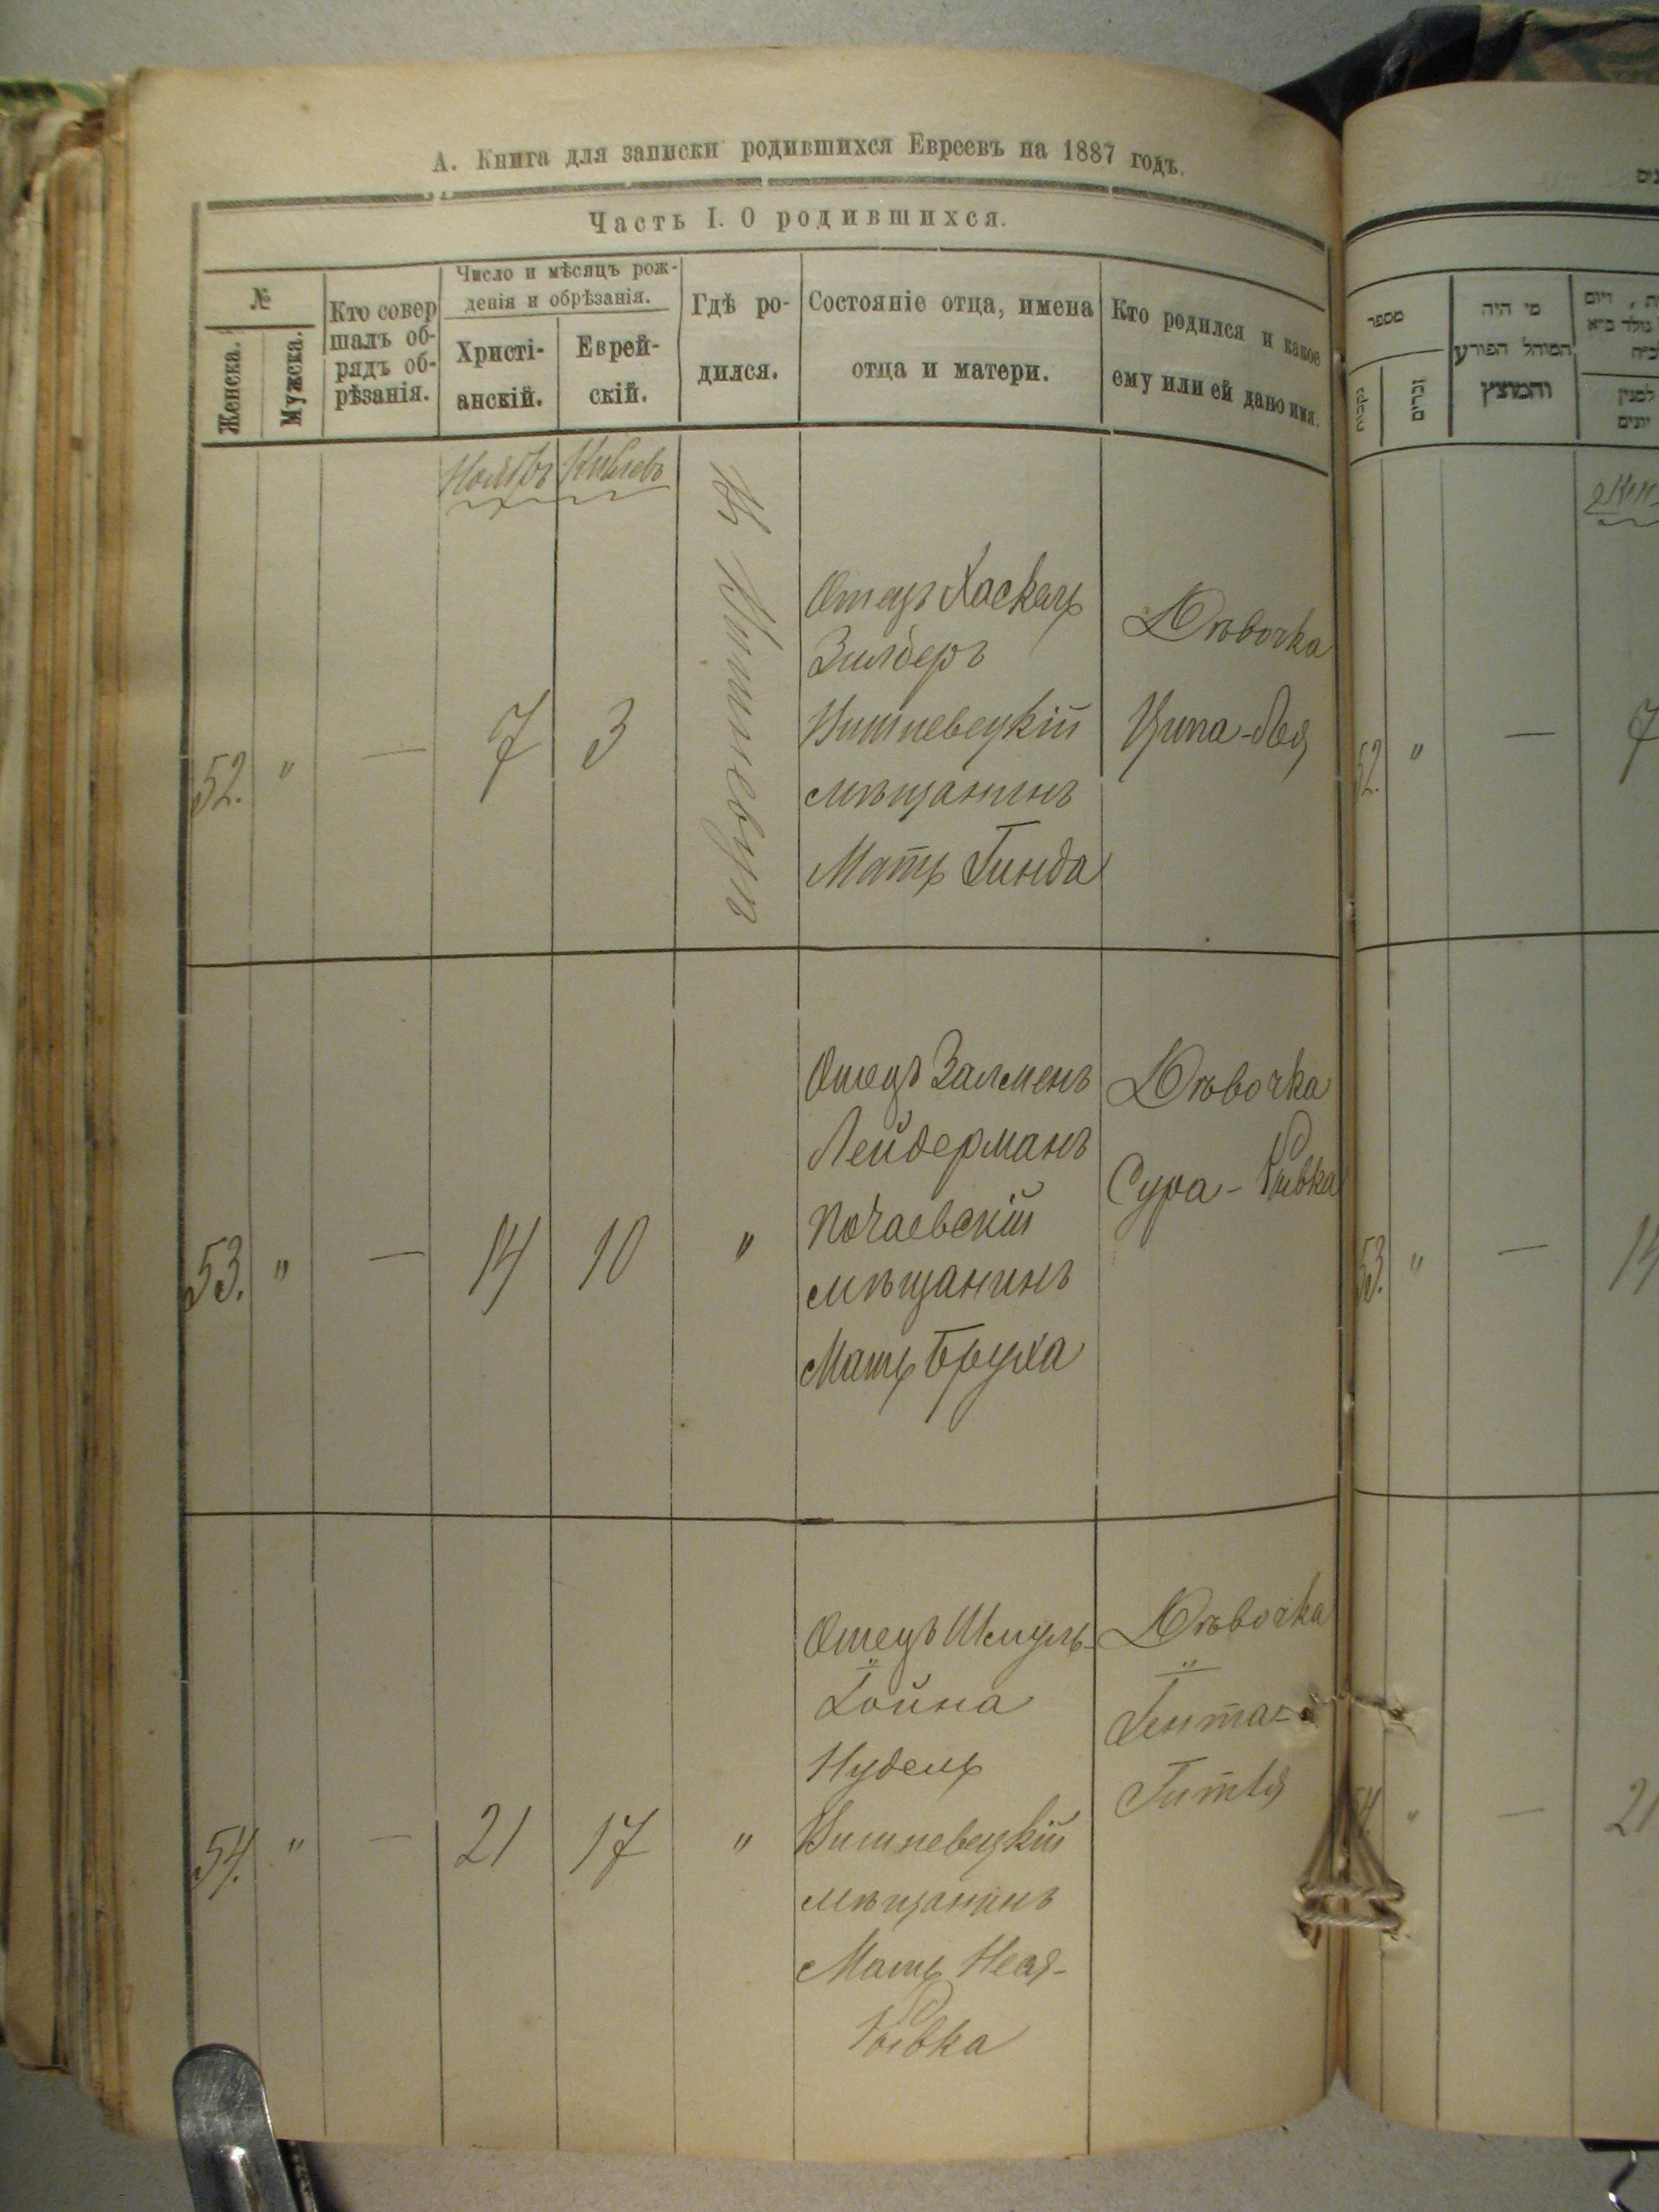 А. Книга для записки родившихся Евреевъ на 1887 годъ.
Часть I. О родившихся.
№
Женска.
Мужска.
Кто совер
шалъ об-
рядъ об-
рѣзанія.
Число и мѣсяцъ рож-
денія и обрѣзанія.
Христі-
анскій.
Еврей-
скій.
Гдѣ ро-
дился.
Состояніе отца, имена
отца и матери.
Кто родился и какое
ему или ей дано имя.
Ноябрь Кислевъ
52. " — 7 3
Отецъ Хаскель
Зилберъ
Вишневецкій
мѣщанинъ
Мать Гинда
Дѣвочка
Ципа-Лея
53. " — 14 10 "
Отецъ Залменъ
Лейдерманъ
Почаевскій
мѣщанинъ
Мать Бруха
Дѣвочка
Сура-Ривка
54. " — 21 17 "
Отецъ Шмуль-
Гойна
Нудель
Вишневецкій
мѣщанинъ
Мать
Ривка
Дѣвочка
Гитля
מספר
נקבות
זכרים
מי היה
המוהל הפורע
והמוצץ
52. " — 7
53. " — 14
" — 21